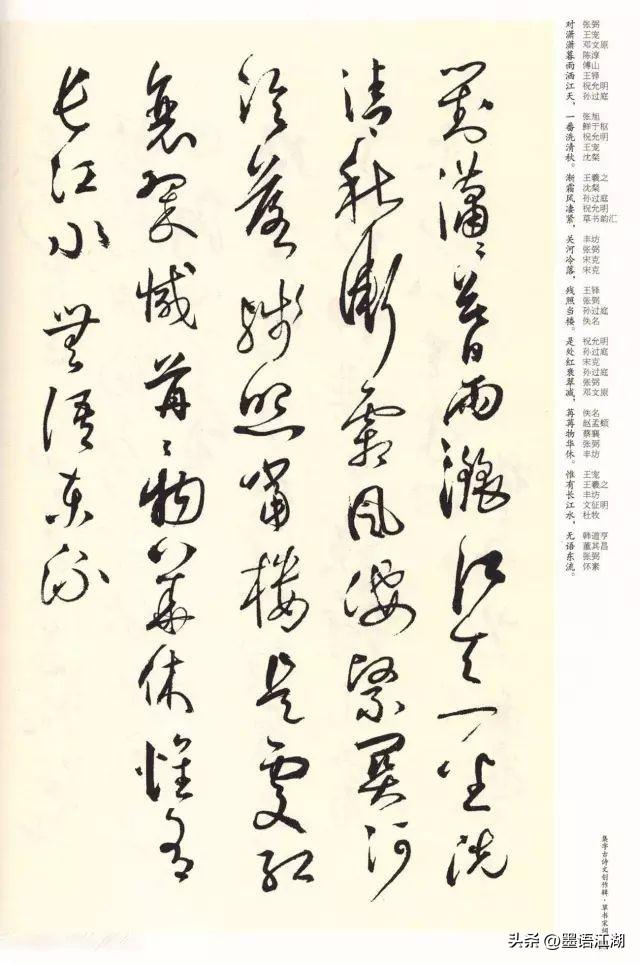 對瀟〻暮雨灑江天一番洗
清秋漸霜風淒緊關河
冷落殘照當樓是處紅
衰翠減苒〻物華休惟有
長江水無語東流
对潇潇暮雨洒江天，一番洗清秋。渐霜风凄紧，关河冷落，残照当楼。是处红衰翠减，苒苒物华休。惟有长江水，无语东流。
张弼
王宠
邓文原
陈淳
傅山
王铎
祝允明
孙过庭
张旭
鲜于枢
祝允明
王宠
沈粲
王羲之
沈粲
孙过庭
祝允明
草书韵汇
丰坊
张弼
宋克
宋克
王铎
张弼
孙过庭
佚名
祝允明
孙过庭
宋克
孙过庭
张弼
邓文原
佚名
赵孟頫
蔡襄
张弼
丰坊
王宠
王羲之
丰坊
文征明
杜牧
韩道亨
董其昌
张弼
怀素
集字古诗文创作辑·草书宋词
头条 @墨语江湖